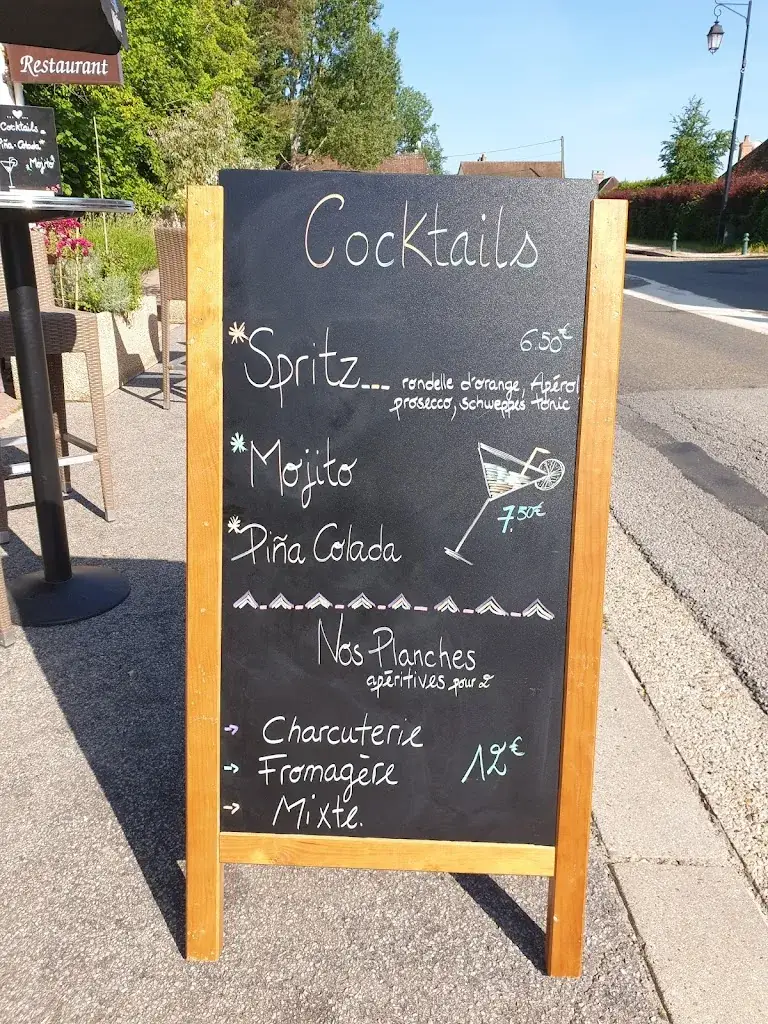 Restaurant
Cocktails
Piña Colada
Mojito
Cocktails
*Spritz... 6.50€
rondelle d'orange, Apérol
prosecco, schweppes tonic
*Mojito
7.50€
*Piña Colada
Nos Planches
apéritives pour 2
→ Charcuterie
→ Fromagère 12€
→ Mixte.